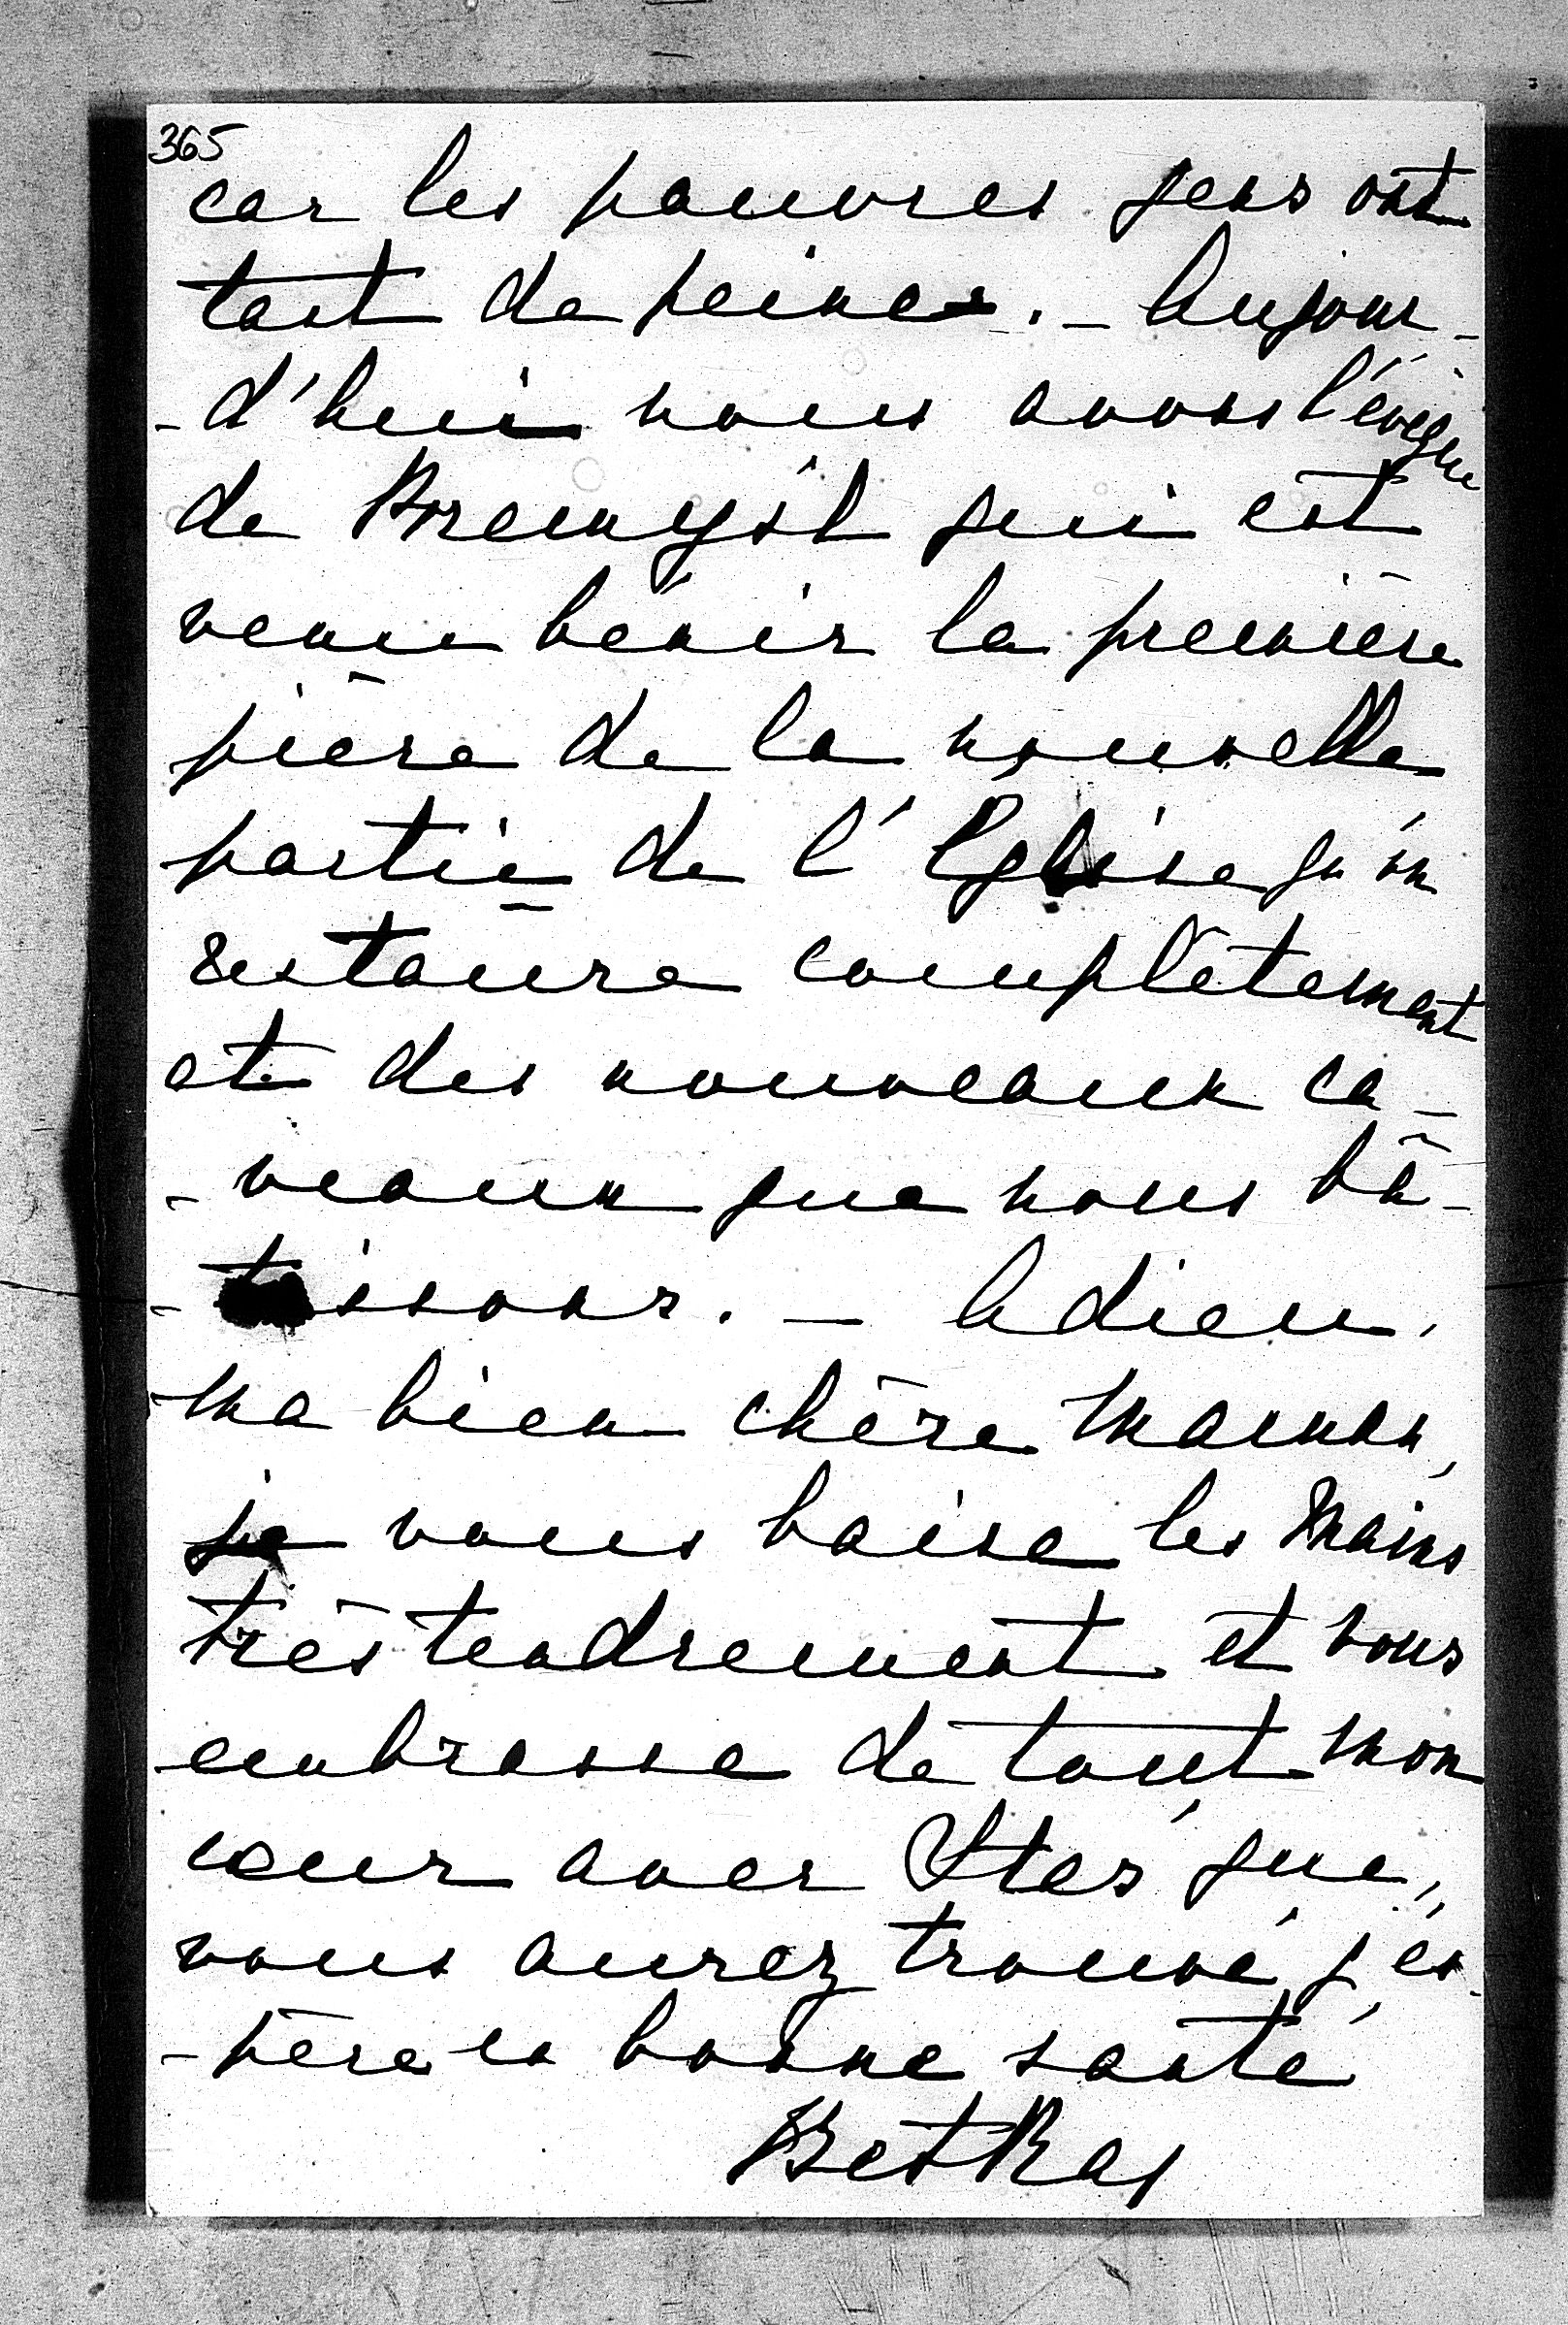 365
car les pauvres gens ont
tant de peines. - Aujour-
-d'hui nous avons l'évêque
de Przemyśl qui est
venu bénir la première
pière de la nouvelle
partie de l'Eglise qu'on
restaure complètement
et des nouveaux ca-
-veaux que nous bâ-
-tissons. - Adieu,
ma bien chère Maman,
je vous baise les mains
très tendrement et vous
embrasse de tout mon
cœur avec que,
vous aurez trouvé, j'es-
-père en bonne santé